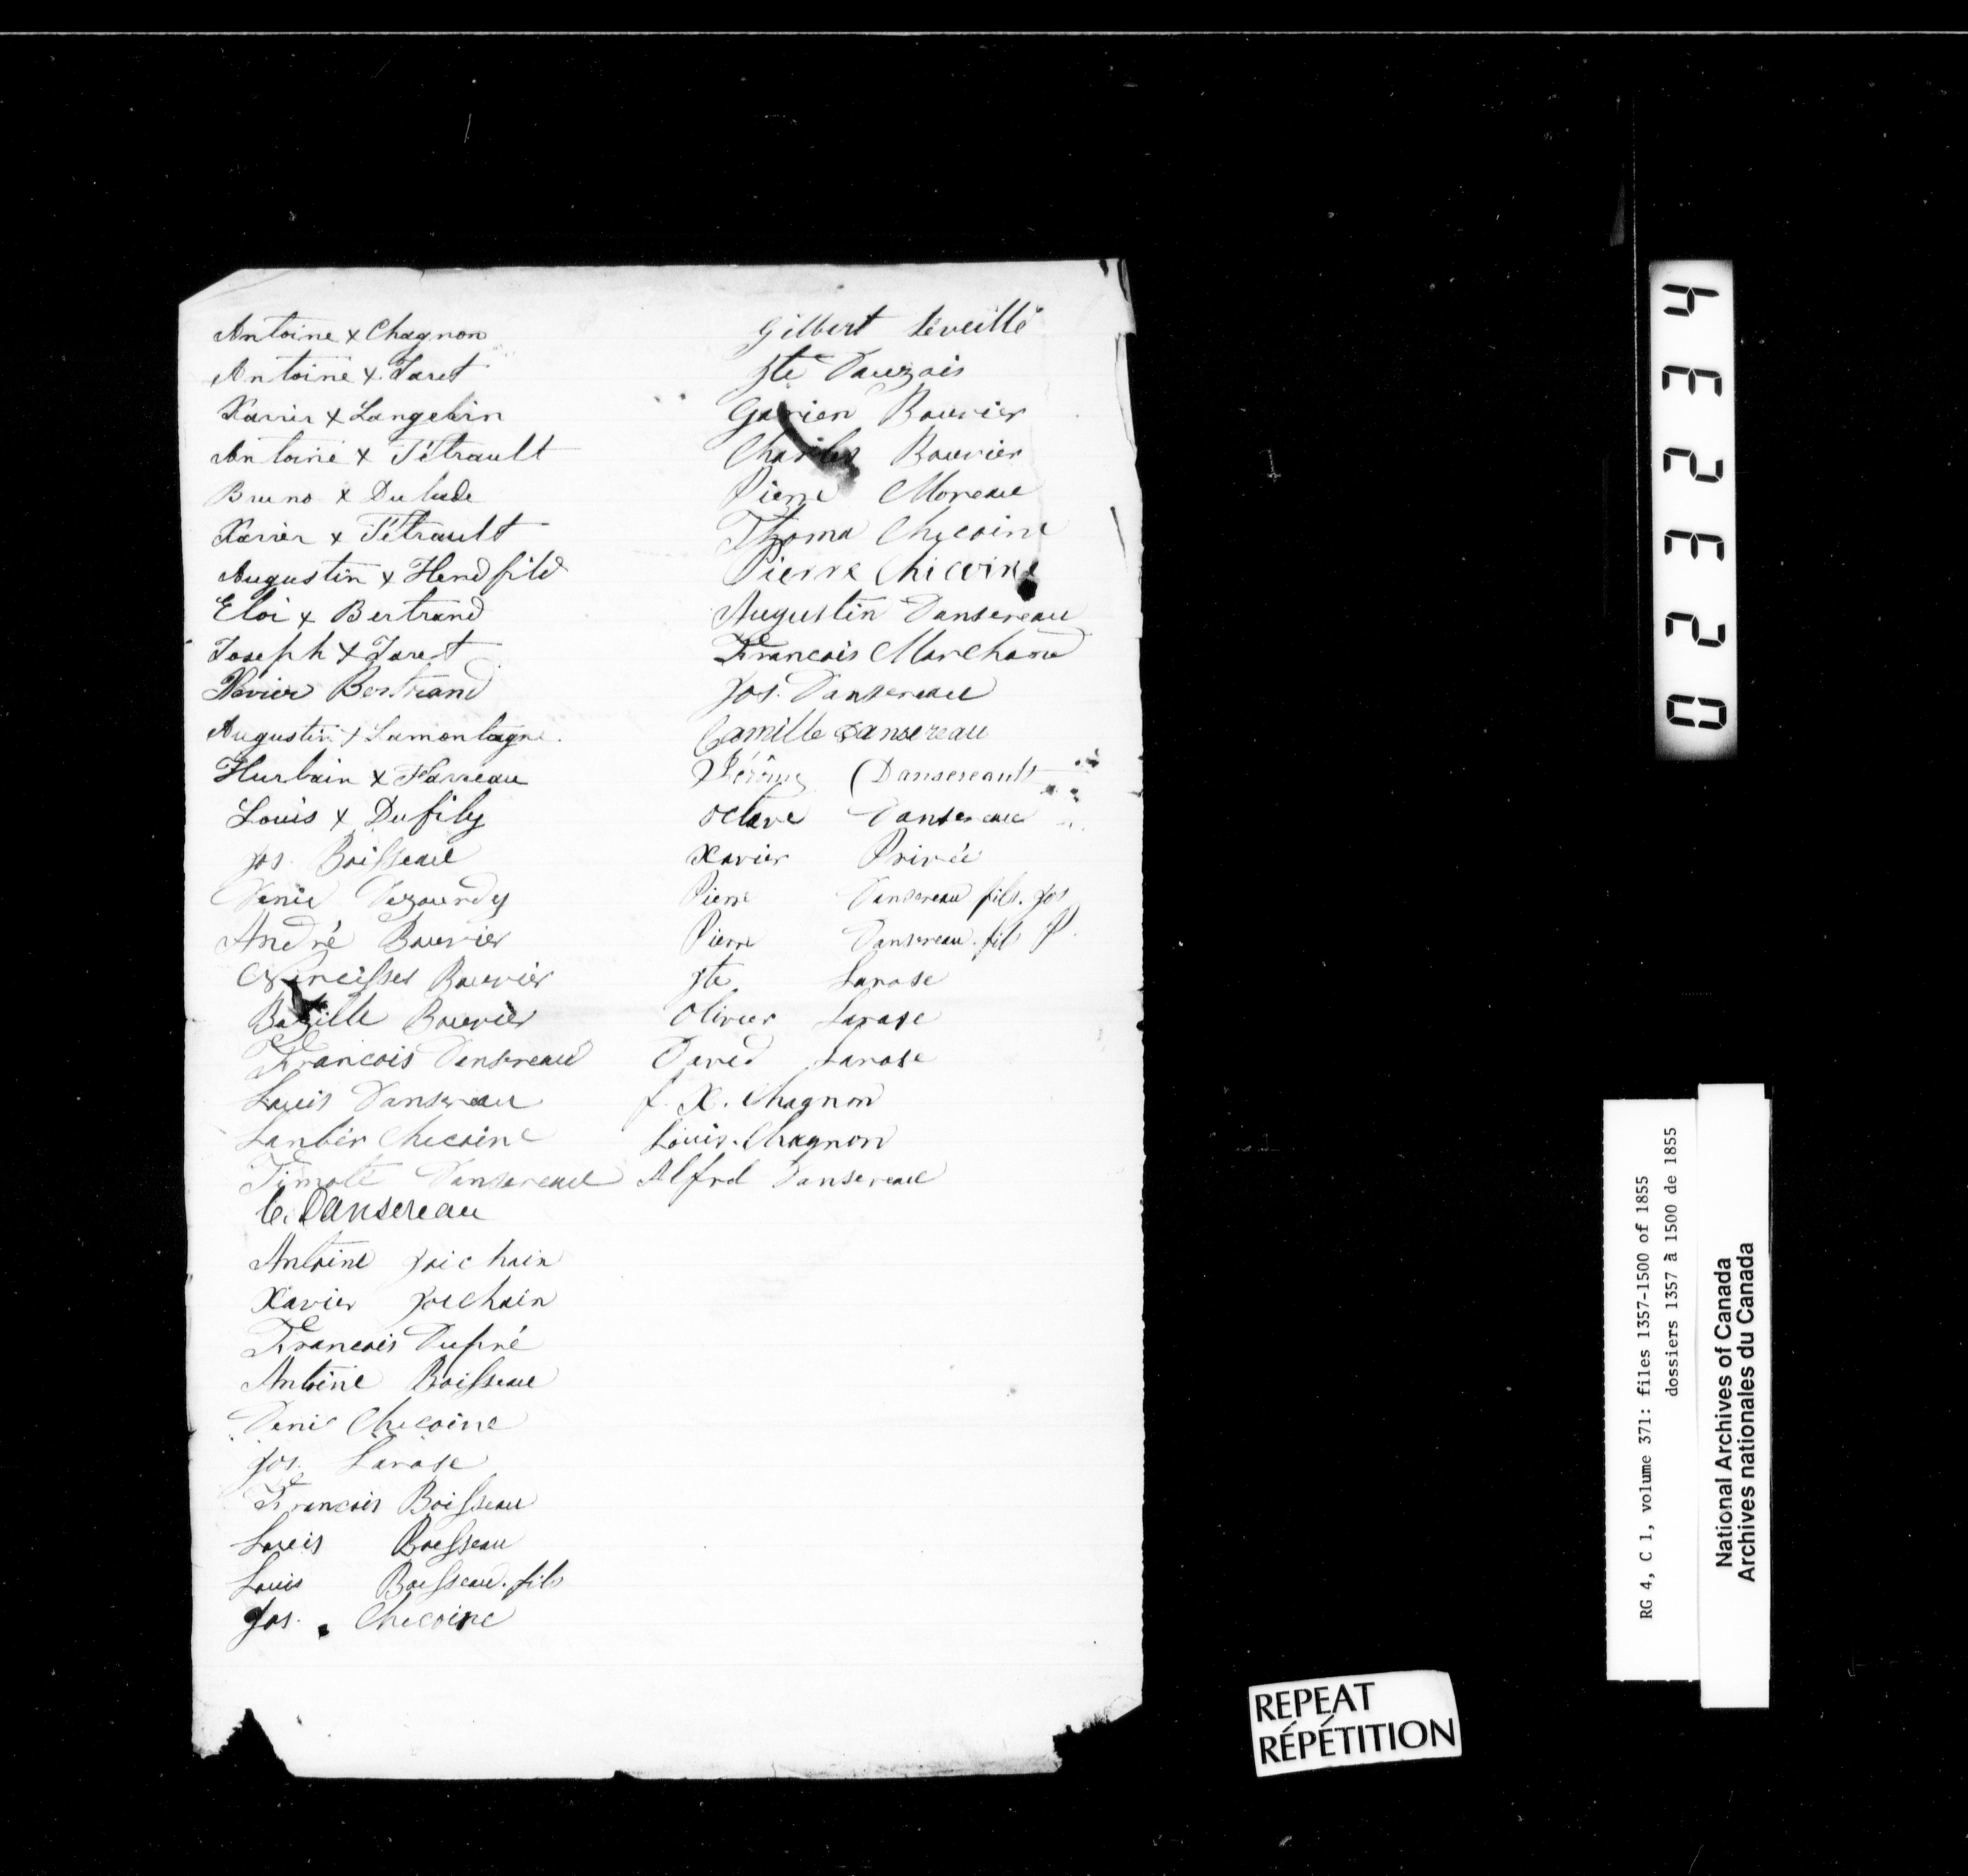 Antoine x Chagnon
Antoine x Jaret
Xavier x Langevin
Antoine x Tétrault
Bruno x Dulude
Xavier x Tétrault
Augustin x Hendfild
Eloi x Bertrand
Joseph x Jaret
Xavier Bertrand
Augustin x Lamontagne
Hurbain x Harreau
Louis x Dufily
Jos. Boisseau
Denis Dezourdy
André Bouvier
Narcisses Bouvier
Bazille Bouvier
Francois Dansereau
Louis Dansereau
Lanbér Chicoine
Timoté Dansereau
C. Dansereau
Antoine Joichain
Xavier Joichain
Francois Dupré
Antoine Boisseau
Denis Chicoine
Jos. Larose
Francois Boisseau
Louis Boisseau
Louis Boisseau. fils
Jos. Chicoine
Gilbert Léveillé
Jte Dauzois
Gassien Bouvier
Charles Bouvier
Pierre Moreau
Thoma Chicoine
Pierre Chicoine
Augustin Dansereau
Francois Marchand
Jos. Dansereau
Camille Dansereau
Jérôme Dansereault
Octave Dansereau
Xavier Privée
Pierre Dansereau fils. Jos
Pierre Dansereau. fils P.
Jte Larose
Olivier Larose
David Larose
f. X. Chagnon
Louis. Chagnon
Alfred Dansereau
023234
RG 4, C 1, volume 371: files 1357-1500 of 1855
dossiers 1357 à 1500 de 1855
National Archives of Canada
Archives nationales du Canada
REPEAT
RÉPÉTITION